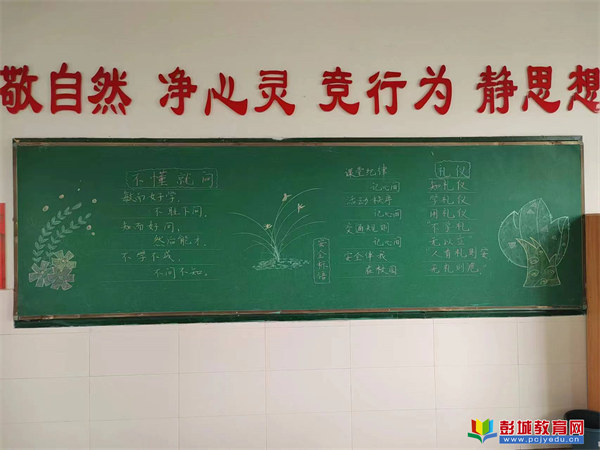 敬自然 净心灵 竞行为 静思想
不懂就问
敏而好学,
不耻下问,
然后能才。
不学不成,
不问不知。
安全标语
课堂纪律
记心间
活动秩序
记心间
交通规则
记心间
安全伴我
在校园
礼仪
知礼仪
学礼仪
用礼仪
人有礼则安
无礼则危!
彭城教育网
www.pcjyedu.cn